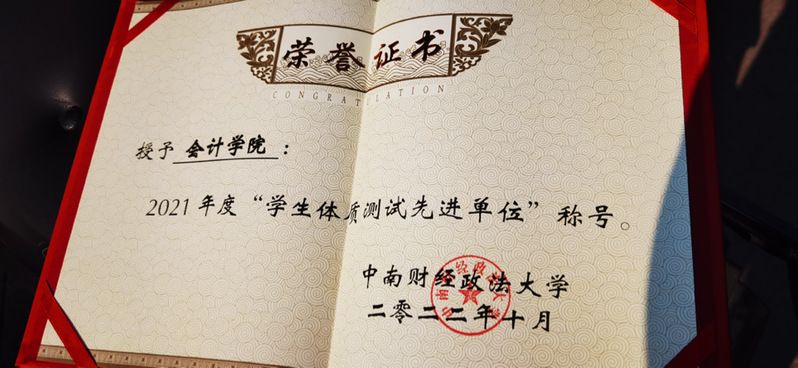 荣誉证书
CONGRATULATION
授予 会计学院：
2021年度“学生体质测试先进单位”称号。
中南财经政法大学
二零二二年十月
中南财经政法大学